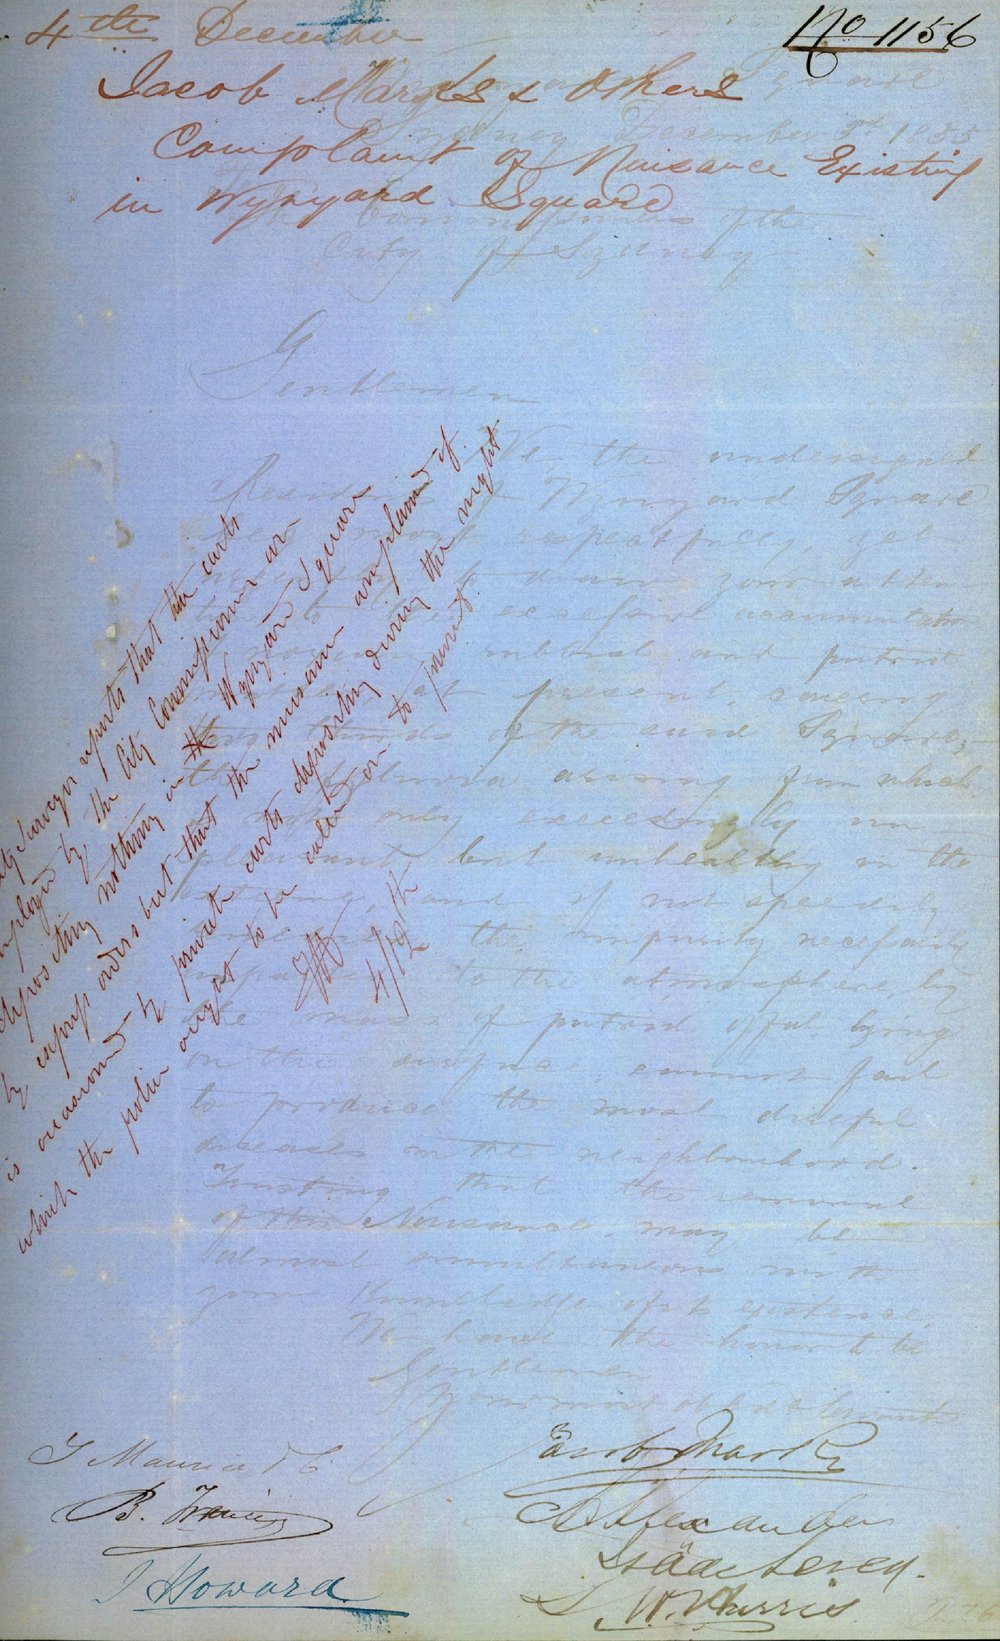 No 1156
4th December
Jacob Marks & Others
Complaint of Nuisance Existing
in Wynyard Square
Square
Sydney December 3rd 1855
The Commissioners of the
City of Sydney
Gentlemen
We, the undersigned
Residents of Wynyard Square
most respectfully, feel
to draw your atten
tion to the excessive accumulation
of rubbish and putrid
matter at present, covering
of the said Square,
the effluvia arising from which
is not only exceedingly un
pleasant, but unhealthy in the
extreme, and if not speedily
the impurity necessarily
imparted to the atmosphere, by
the mass of putrid offal lying
on the surface cannot fail
to produce the most direful
diseases in the neighbourhood.
Trusting that the removal
of this Nuisance, may be
almost simultaneous with
your knowledge of its existence.
We have the honor to be
Gentlemen
Your most obdt Servants
Jacob Marks
Alexander
Isaac Levey.
W. Harris
B. Francis
J Howard
City Surveyor reports that the carts
employed by the City Commissioners are
depositing nothing in the Wynyard Square
by express orders but that the nuisance complained of
is occasioned by private carts depositing during the night
which the police ought to be called on to prevent.
4/12th